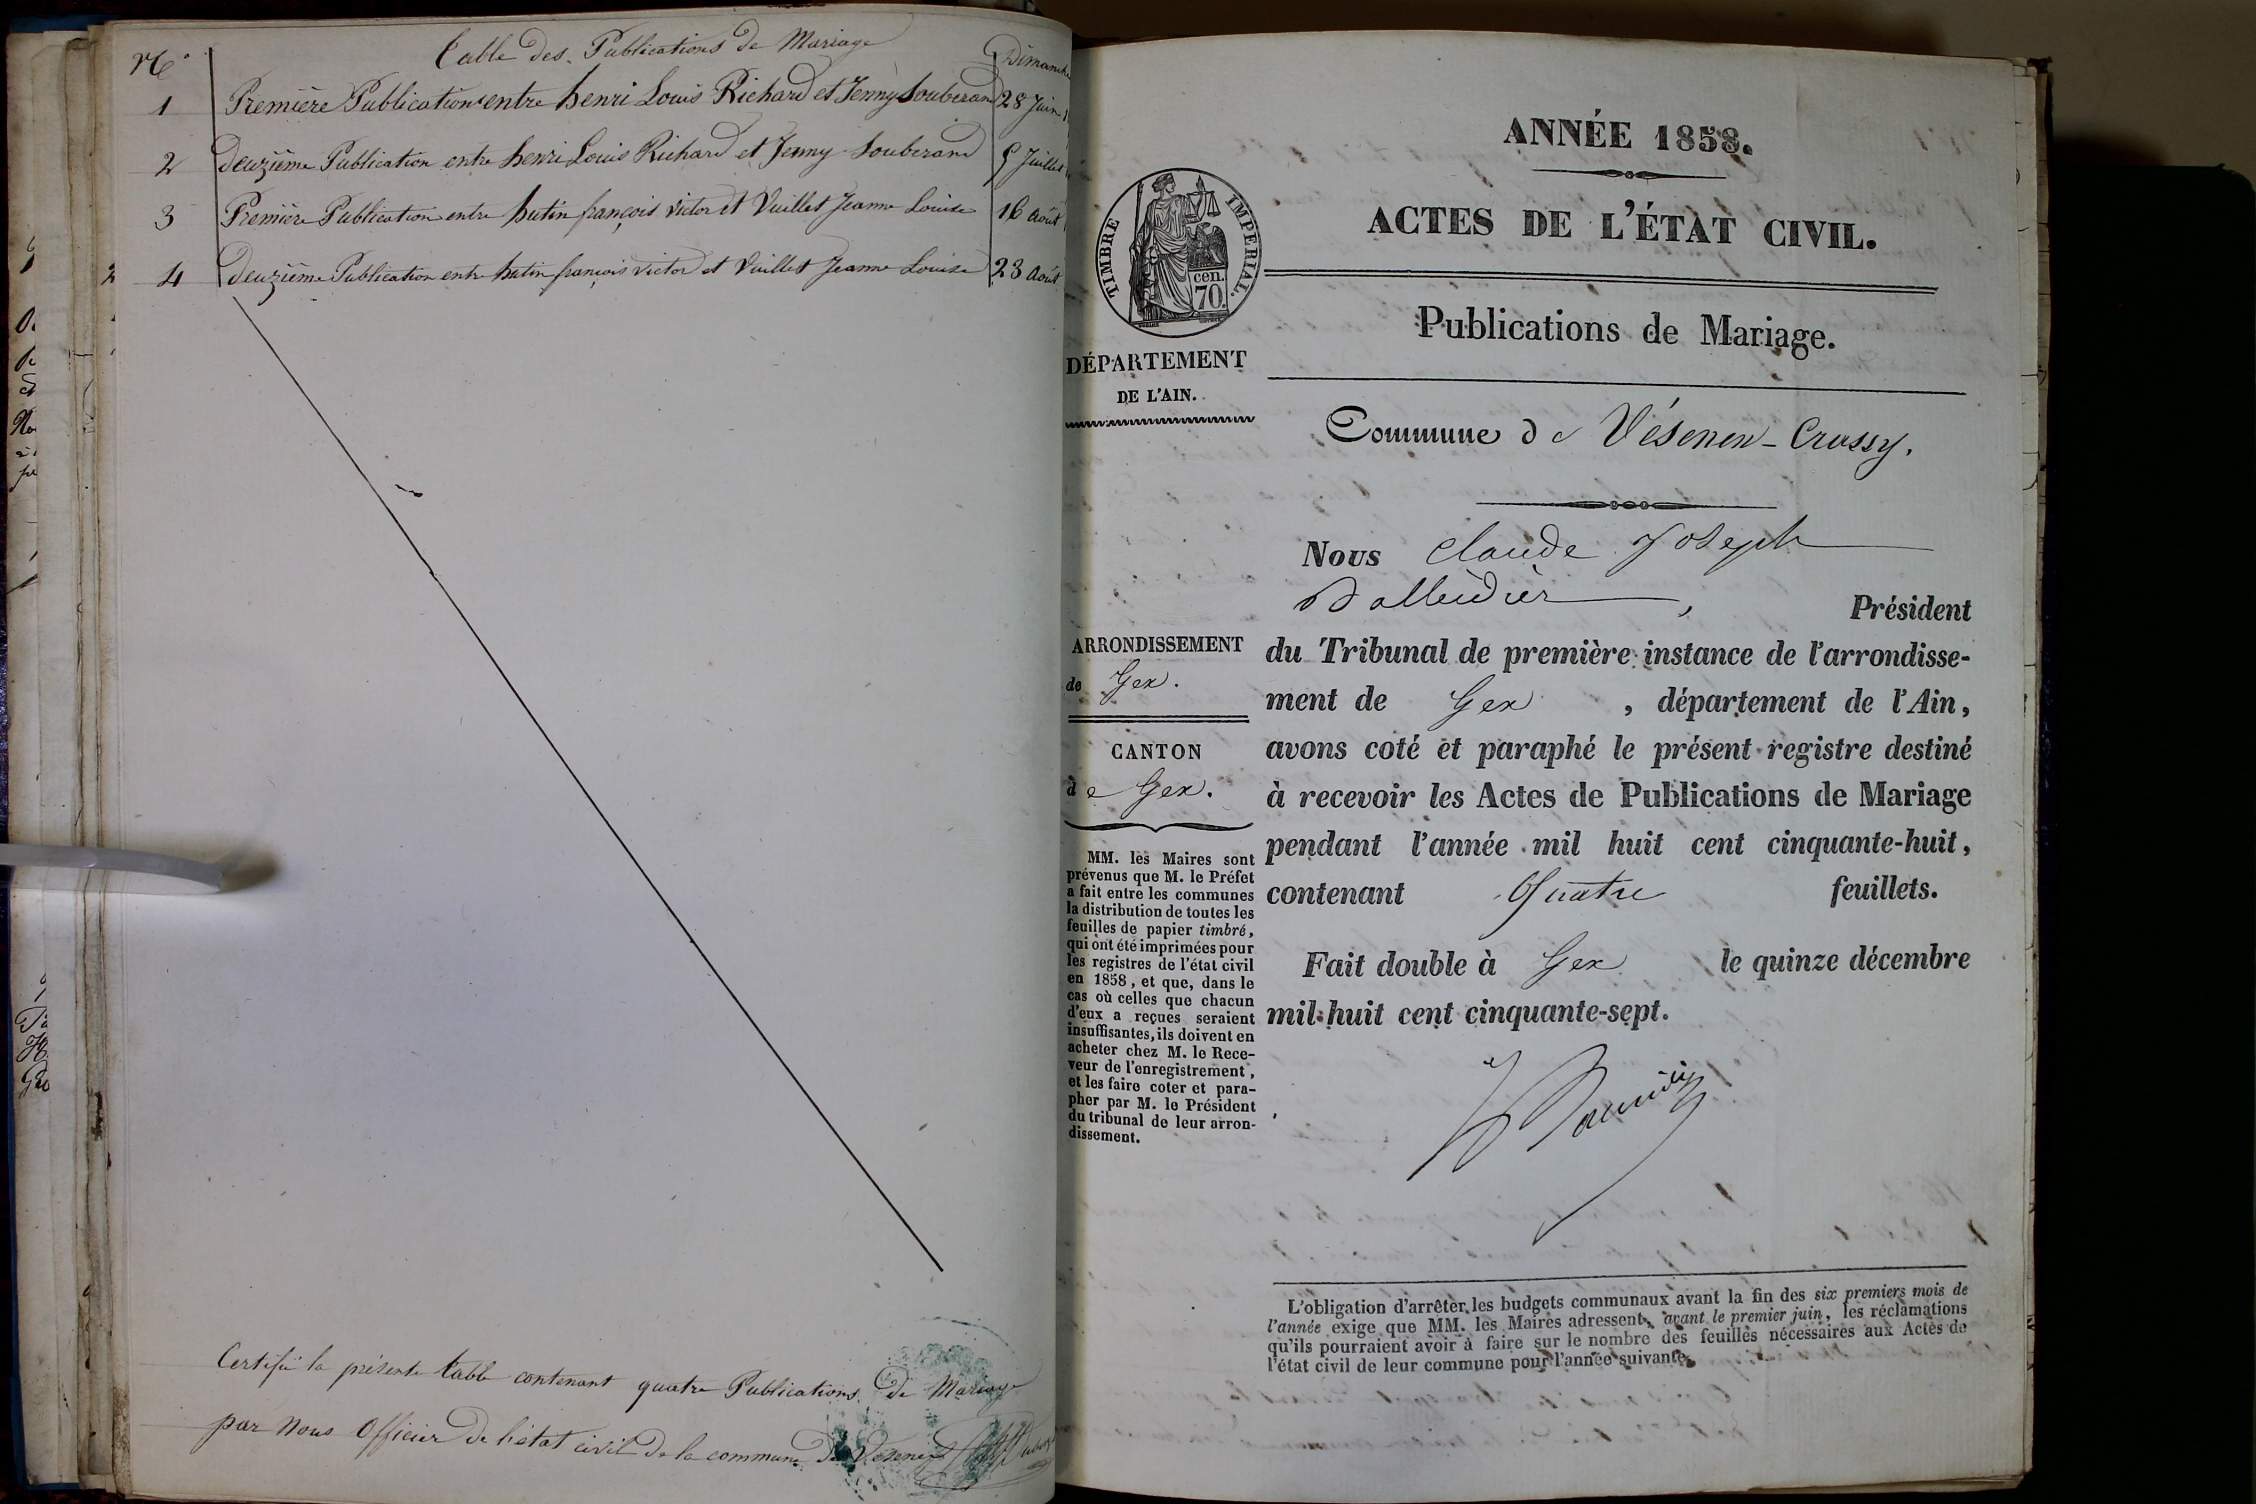 N° Table des Publications de Mariage Dimanche
1 Première Publication entre henri Louis Richard et Jenny Souberand 28 Juin
2 deuzième Publication entre henri Louis Richard et Jenny Souberand 5 Juillet
3 Première Publication entre hutin françois victor et Vuillet Jeanne Louise 16 Août
4 deuzième Publication entre hutin françois victor et Vuillet Jeanne Louise 23 Août
Certifié la présente table contenant quatre Publications de Mariage
par Nous Officier de l'état civil de la commune de Vesenex
ANNÉE 1858.
ACTES DE L'ÉTAT CIVIL.
TIMBRE IMPERIAL.
cen.
70.
Publications de Mariage.
DÉPARTEMENT
DE L'AIN.
Commune de Vésenex-Crassy.
Nous Claude Joseph
Président
ARRONDISSEMENT
de Gex.
CANTON
de Gex.
MM. les Maires sont
prévenus que M. le Préfet
a fait entre les communes
la distribution de toutes les
feuilles de papier timbré,
qui ont été imprimées pour
les registres de l'état civil
en 1858, et que, dans le
cas où celles que chacun
d'eux a reçues seraient
insuffisantes, ils doivent en
acheter chez M. le Rece-
veur de l'enregistrement,
et les faire coter et para-
pher par M. le Président
du tribunal de leur arron-
dissement.
du Tribunal de première instance de l'arrondisse-
ment de Gex, département de l'Ain,
avons coté et paraphé le présent registre destiné
à recevoir les Actes de Publications de Mariage
pendant l'année mil huit cent cinquante-huit,
contenant Quatre feuillets.
Fait double à Gex le quinze décembre
mil huit cent cinquante-sept.
L'obligation d'arrêter les budgets communaux avant la fin des six premiers mois de
l'année exige que MM. les Maires adressent, avant le premier juin, les réclamations
qu'ils pourraient avoir à faire sur le nombre des feuilles nécessaires aux Actes de
l'état civil de leur commune pour l'année suivante.